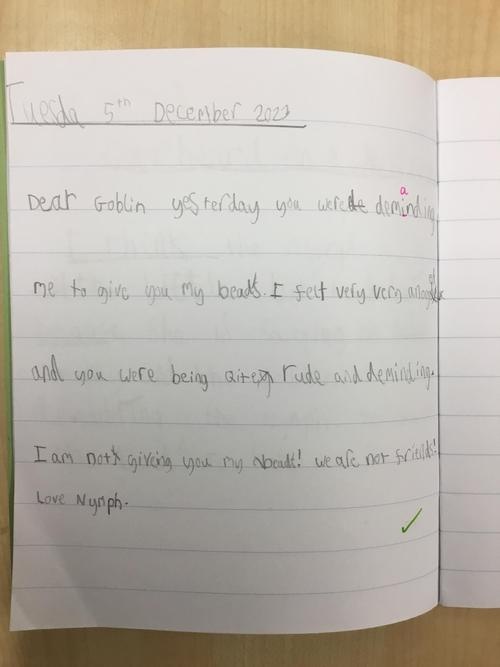 Tuesda 5th December 2023
Dear Goblin yesterday you were deminding
me to give you my beads. I felt very very
and you were being qite rude and deminding.
I am not giveing you my beads! we are not frieilds!
Love Nymph.